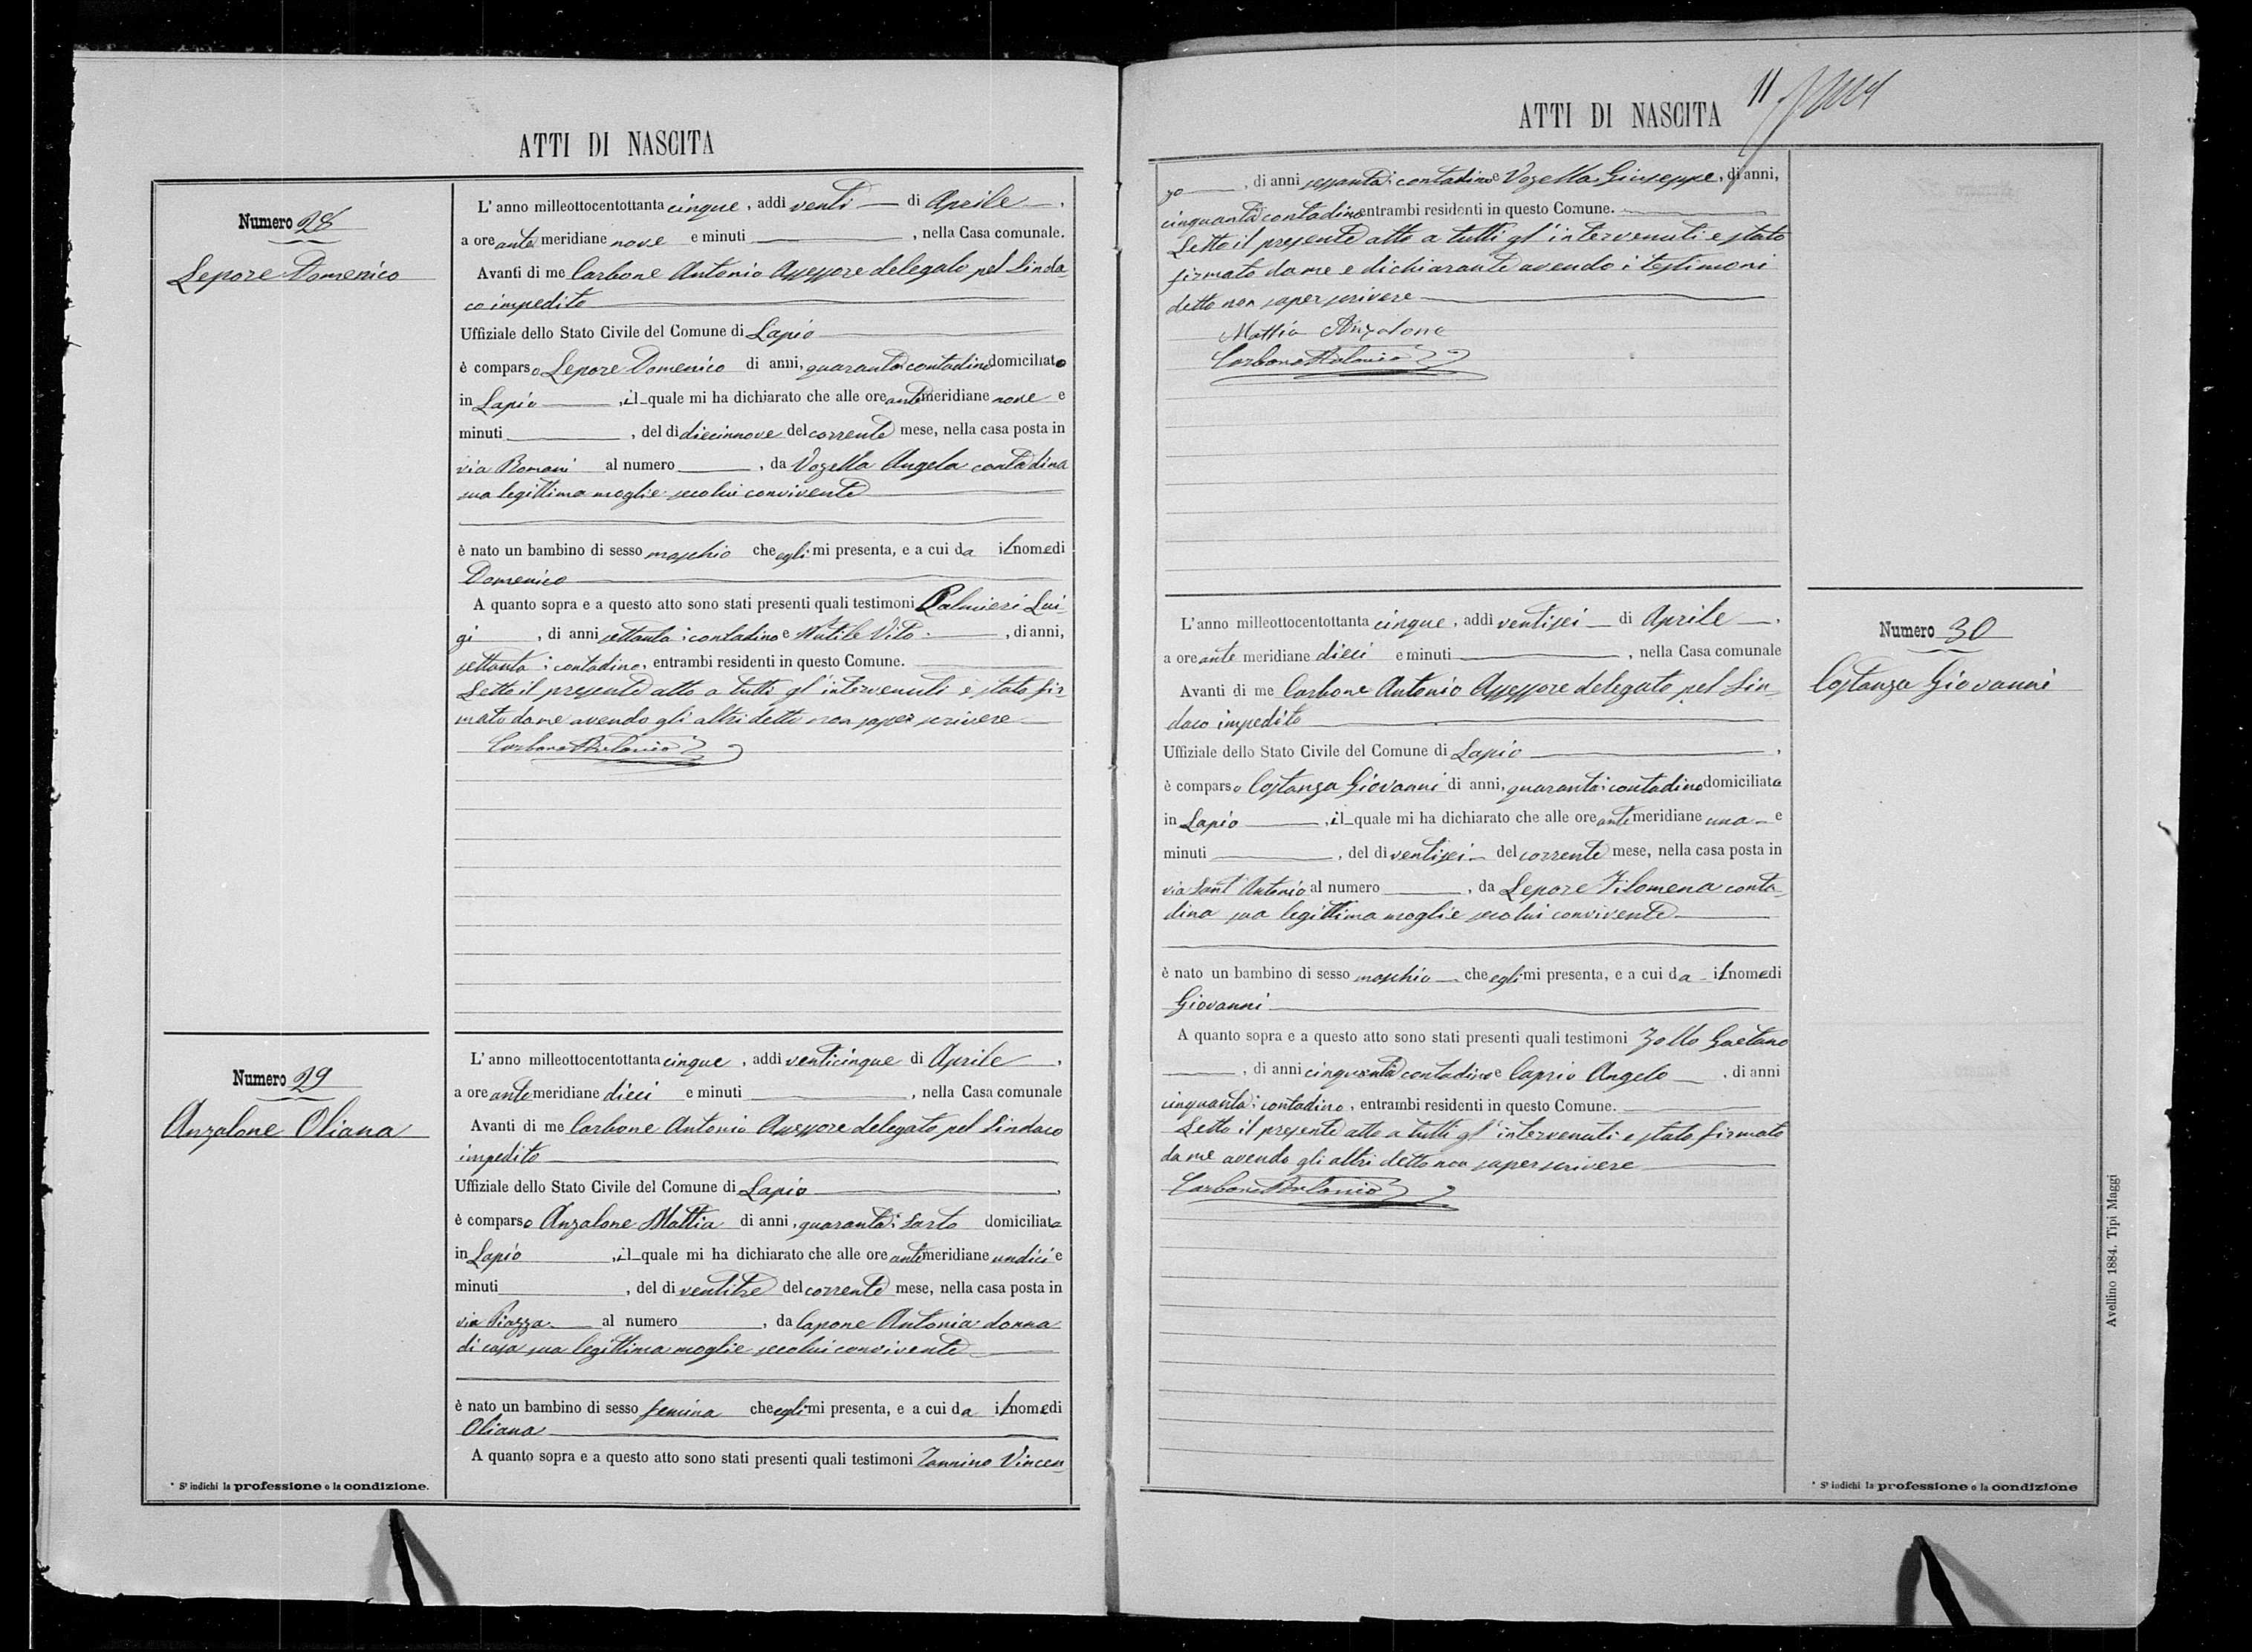 ATTI DI NASCITA
Numero 28
Lepore Domenico
L' anno milleottocentottanta cinque, addì venti di Aprile,
a ore ante meridiane nove e minuti , nella Casa comunale.
Avanti di me Carbone Antonio Assessore delegato pel Sinda-
co impedito
Uffiziale dello Stato Civile del Comune di Lapio
è comparso Lepore Domenico di anni, quaranta: contadino domiciliato
in Lapio , il quale mi ha dichiarato che alle ore antemeridiane nove e
minuti , del dì diecinnove del corrente mese, nella casa posta in
via Romani al numero , da Vozella Angela contadina
sua legittima moglie secolui convivente
è nato un bambino di sesso maschio che egli mi presenta, e a cui da il nome di
Domenico
A quanto sopra e a questo atto sono stati presenti quali testimoni Palmieri Lui-
gi , di anni settanta: contadino e Vito , di anni,
settanta: contadino, entrambi residenti in questo Comune.
Letto il presente atto a tutti gl' intervenuti è stato fir
mato da me avendo gli altri detto non saper scrivere
Carbone Antonio
Numero 29
Anzalone Oliana
L' anno milleottocentottanta cinque, addì venticinque di Aprile,
a ore antemeridiane dieci e minuti , nella Casa comunale
Avanti di me Carbone Antonio Assessore delegato pel Sindaco
impedito
Uffiziale dello Stato Civile del Comune di Lapio,
è comparso Anzalone Mattia di anni, quaranta: Sarto domiciliato
in Lapio , il quale mi ha dichiarato che alle ore antimeridiane undici e
minuti , del dì ventitre del corrente mese, nella casa posta in
via Piazza al numero , da Capone Antonia: donna
di casa sua legittima moglie secolui convivente
è nato un bambino di sesso femina che egli mi presenta, e a cui da il nome di
Oliana
A quanto sopra e a questo atto sono stati presenti quali testimoni Iannino Vincen-
* S' indichi la professione o la condizione.
ATTI DI NASCITA 11
zo , di anni sessanta: contadino e Vozella Giuseppe, di anni,
cinquanta contadino entrambi residenti in questo Comune.
Letto il presente atto a tutti gl' intervenuti e stato
firmato da me e dichiarante avendo i testimoni
detto non saper scrivere
Mattia Anzalone
Carbone Antonio
L' anno milleottocentottanta cinque, addì ventisei di Aprile,
a ore ante meridiane dieci e minuti , nella Casa comunale
Avanti di me Carbone Antonio Assessore delegato pel Sin-
daco impedito
Uffiziale dello Stato Civile del Comune di Lapio,
è comparso Costanza Giovanni di anni, quaranta: contadino domiciliato
in Lapio , il quale mi ha dichiarato che alle ore ante meridiane una e
minuti , del dì ventisei del corrente mese, nella casa posta in
via Sant' Antonio al numero , da Lepore Filomena conta-
dina sua legittima moglie secolui convivente
è nato un bambino di sesso maschio che egli mi presenta, e a cui da il nome di
Giovanni
A quanto sopra e a questo atto sono stati presenti quali testimoni Zollo Gaetano
, di anni cinquanta contadino e Caprio Angelo , di anni
cinquanta: contadino, entrambi residenti in questo Comune.
Letto il presente atto a tutti gl' intervenuti e stato firmato
da me avendo gli altri detto non saper scrivere
Carbone Antonio
Numero 30
Costanza Giovanni
* S' indichi la professione o la condizione
Avellino 1884. Tipi Maggi